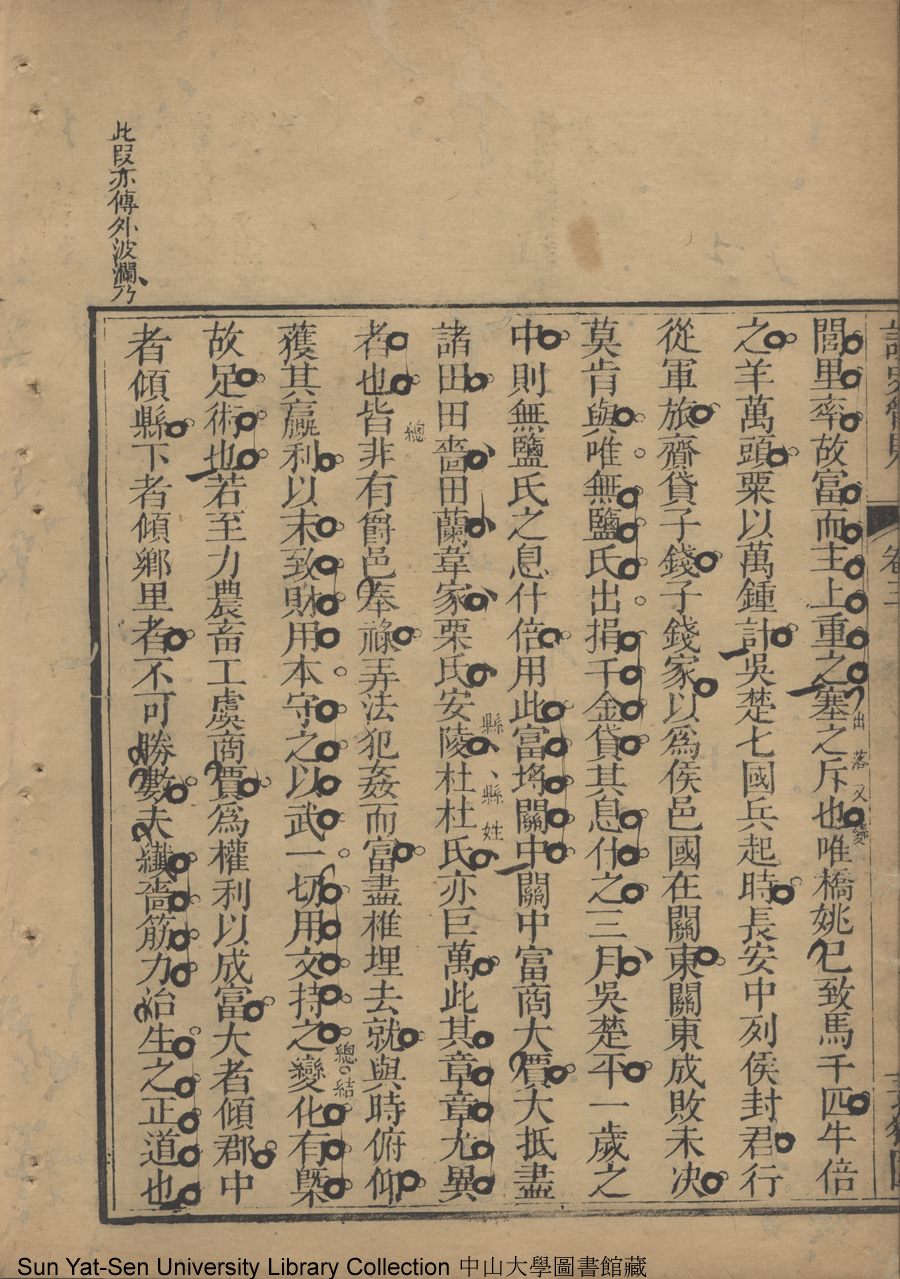 閭里率故富而主上重之塞之斥也唯橋姚已致馬千匹牛倍
之羊萬頭粟以萬鍾計吳楚七國兵起時長安中列侯封君行
從軍旅齎貸子錢子錢家以爲侯邑國在關東關東成敗未決
莫肯與唯無鹽氏出捐千金貸其息什之三月吳楚平一歲之
中則無鹽氏之息什倍用此富埒關中關中富商大賈大抵盡
諸田田嗇田蘭韋家栗氏安陵杜杜氏亦巨萬此其章章尤異
者也皆非有爵邑奉祿弄法犯姦而富盡椎埋去就與時俯仰
獲其贏利以末致財用本守之以武一切用文持之變化有槩
故足術也若至力農畜工虞商賈爲權利以成富大者傾郡中
者傾縣下者傾鄉里者不可勝數夫纎嗇筋力治生之正道也
出落又變
縣、縣姓
總
總結
此段亦傳外波瀾乃
卷三
Sun Yat-Sen University Library Collection 中山大學圖書館藏